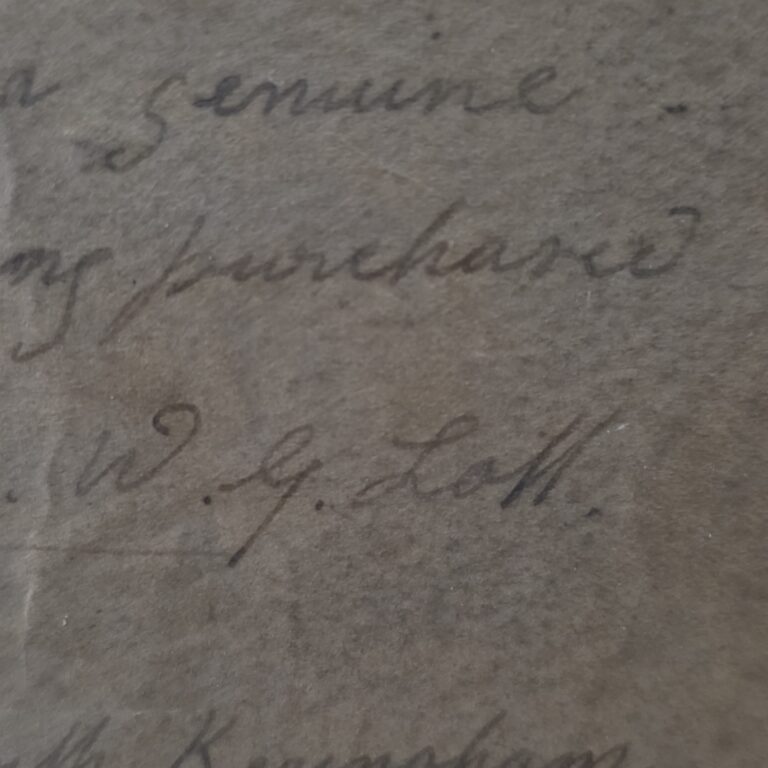 a genuine
ng purchased
W. G. Lott.